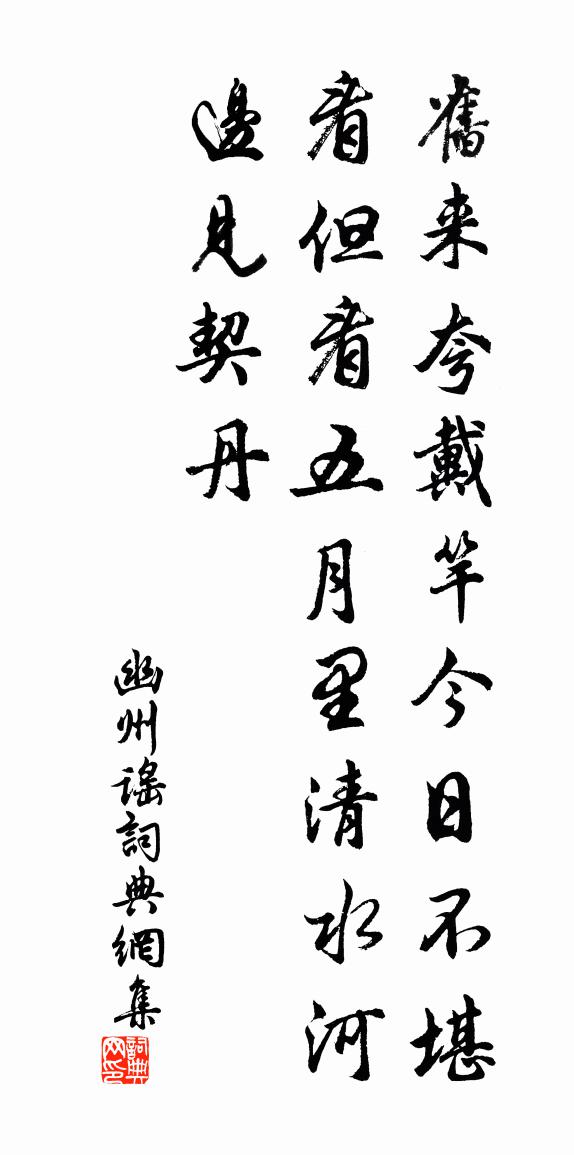 舊来夸戴竿今日不堪
看但看五月里清水河
邊見契丹
幽州謡詞典網集
詞典网印